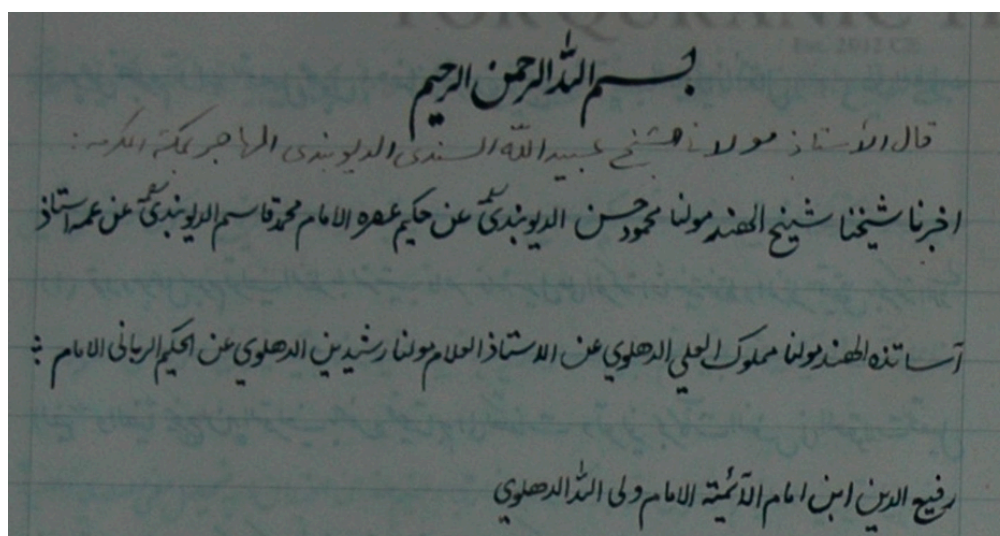 FOR QURANIC
Est. 2012 CE
بسم الله الرحمن الرحيم
قال الأستاذ مولانا شيخ عبيد الله السندى الديوبندى المهاجر بمكة المكرمه :
اخبرنا شيخنا شيخ الهند مولنا محمود حسن الديوبندى عن حكيم عصره الامام محمد قاسم الديوبندى عن عمه استاذ
آساتذه الهند مولنا مملوك العلي الدهلوي عن الاستاذ العلام مولنا رشيدين الدهلوي عن الحكيم الربانى الامام
رفيع الدين ابن امام الآئمته الامام ولى الله الدهلوي